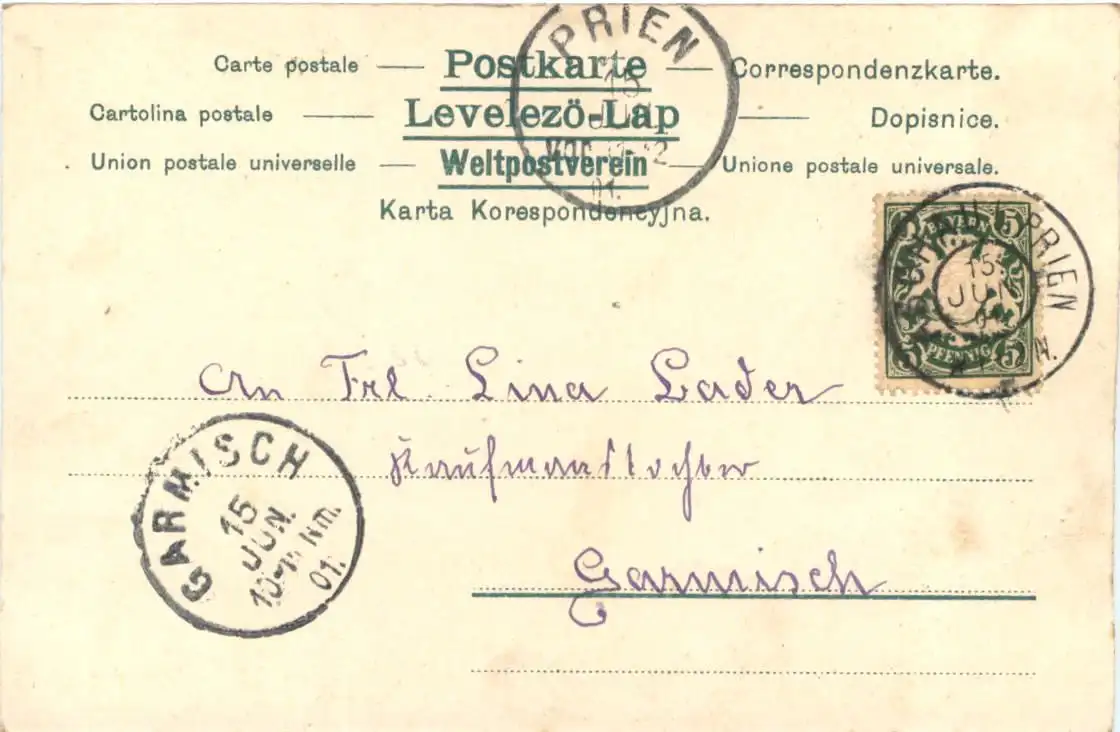 Carte postale — Postkarte — Correspondenzkarte.
Cartolina postale — Levelező-Lap — Dopisnice.
Union postale universelle — Weltpostverein — Unione postale universale.
Karta Korespondencyjna.
PRIEN
15
JUN
Vor. 11-12
01.
BAYERN
5 5
PFENNIG
5 5
PRIEN
15
JUN
An Frl Lina Lader
Kaufmanstochter
Garmisch
GARMISCH
15
JUN.
10-11 Nm.
01.